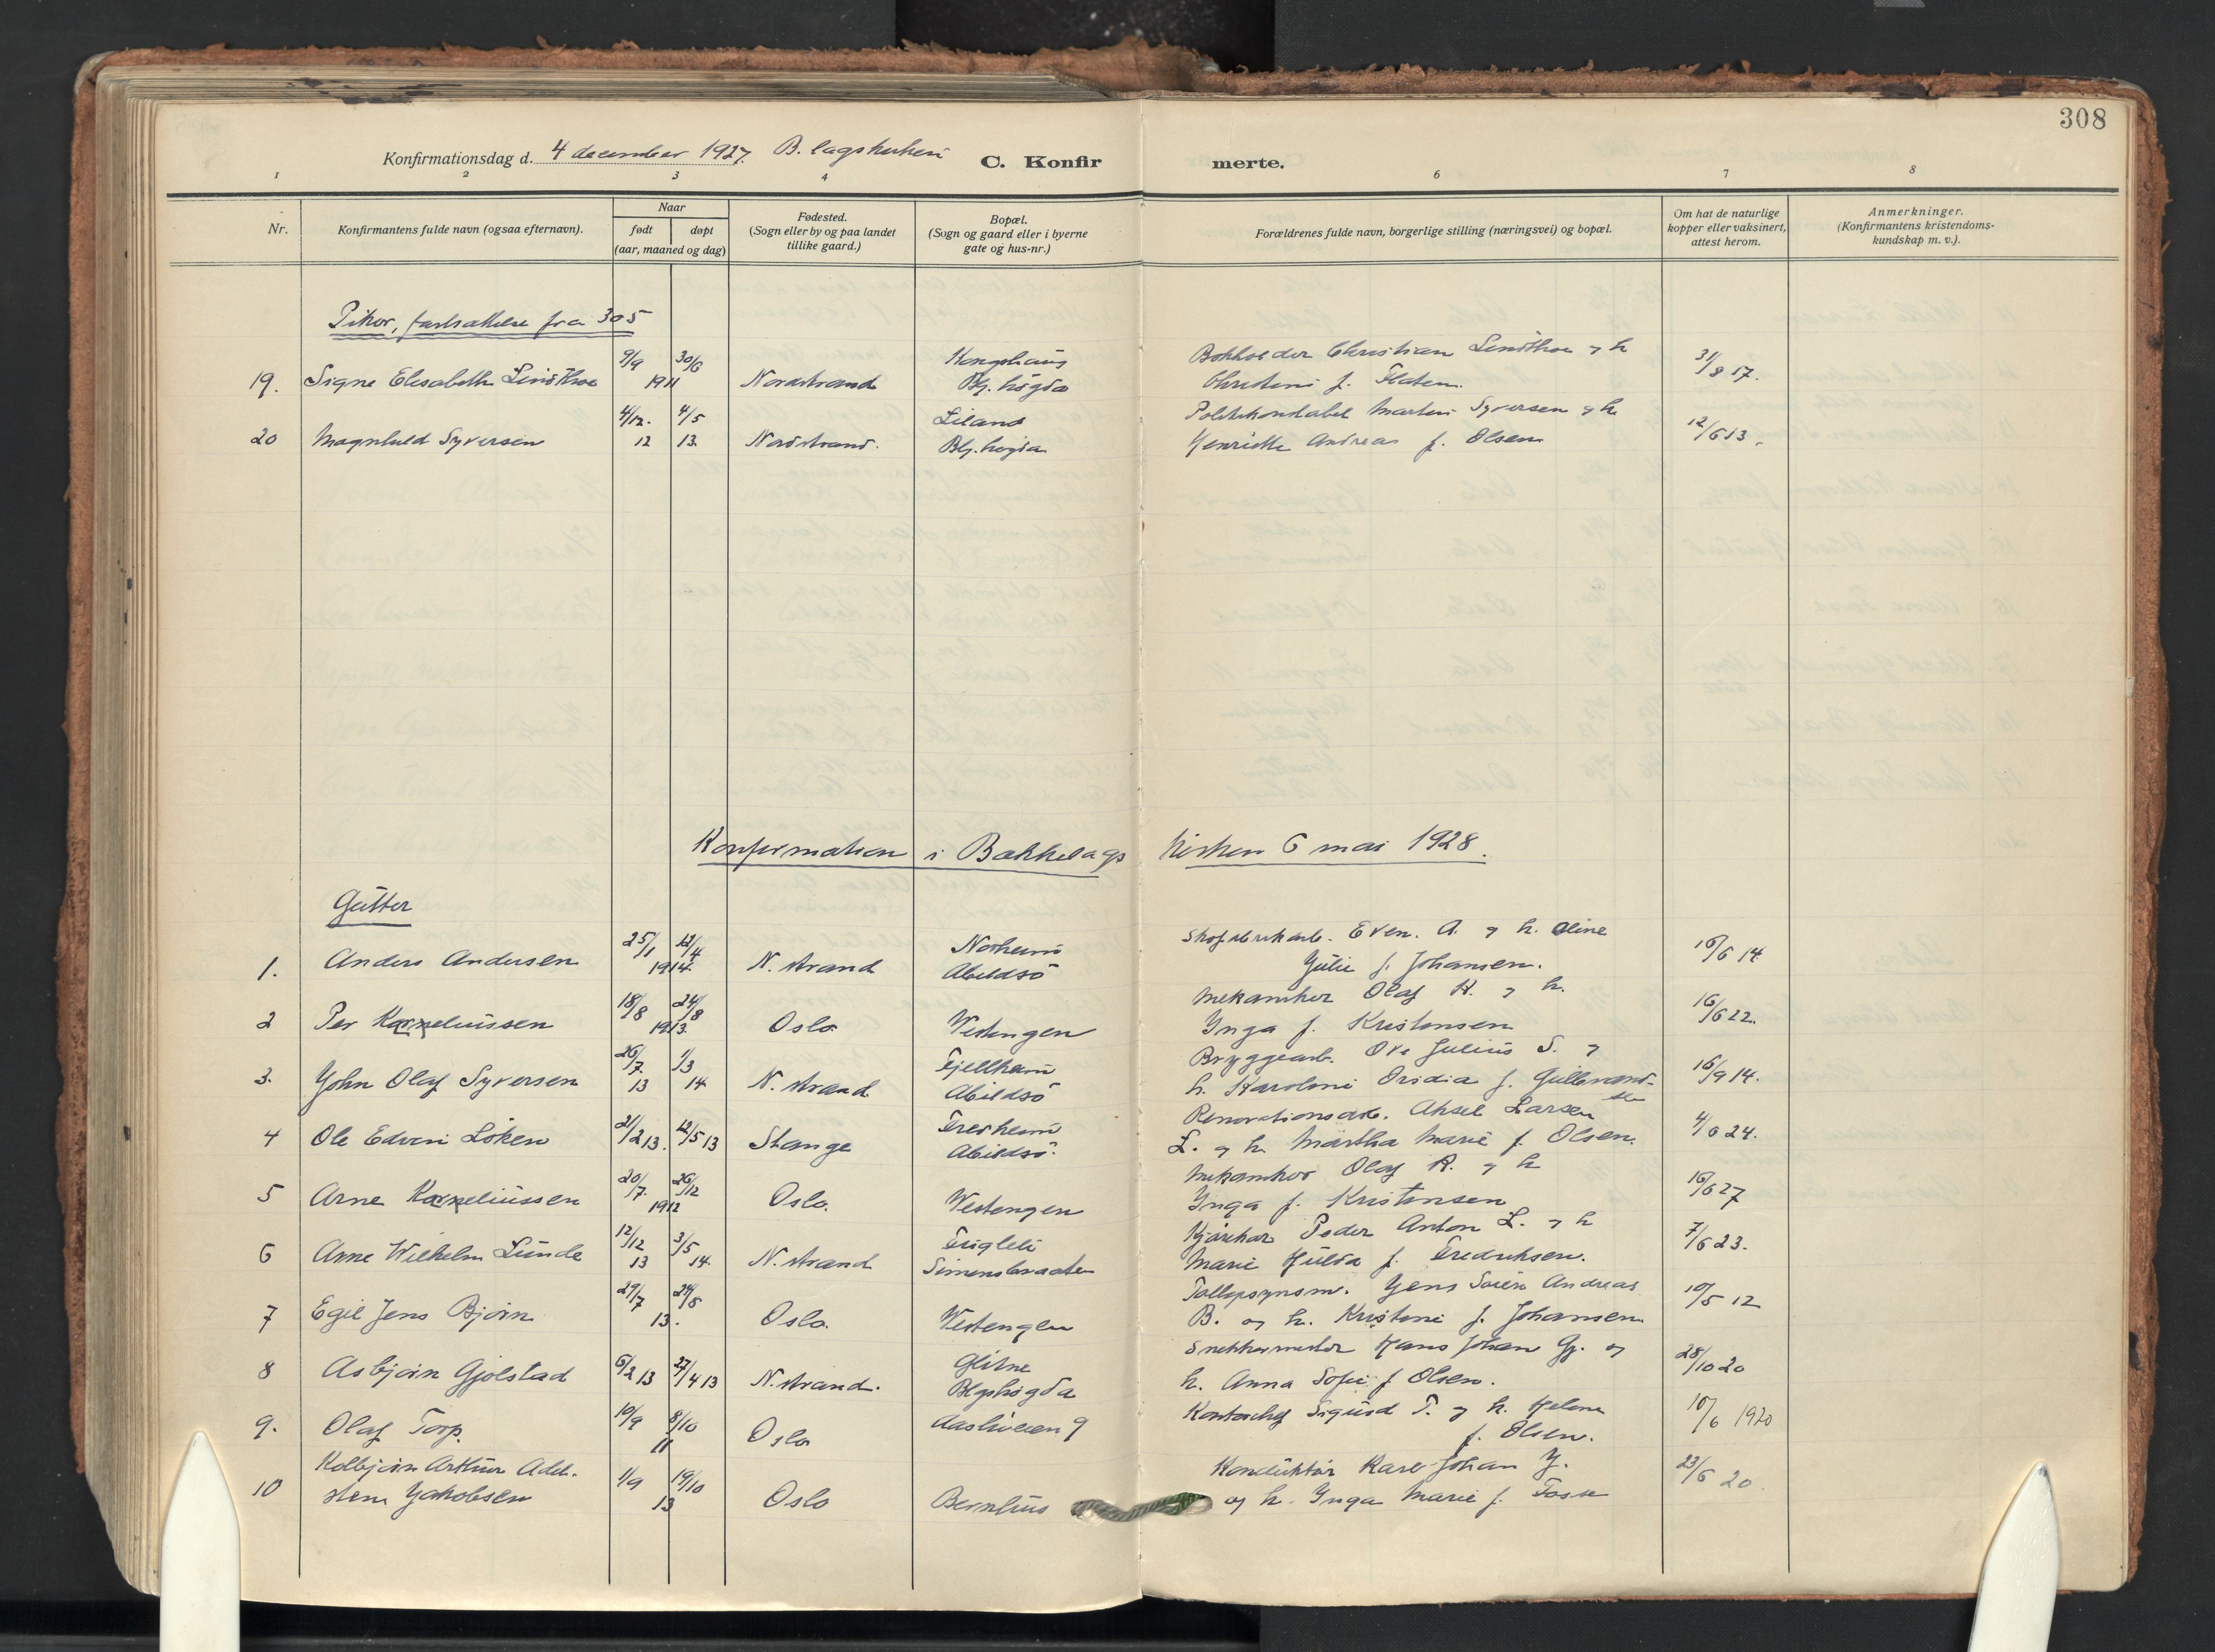 308
Konfirmationsdag d. 4 december 1927. B.lagskirken C. Konfirmerte.
1 2 3 4 6 7 8
Nr. Konfirmantens fulde navn (ogsaa efternavn). Naar født døpt (aar, maaned og dag) Fødested. (Sogn eller by og paa landet tillike gaard.) Bopæl. (Sogn og gaard eller i byerne gate og hus-nr.) Forældrenes fulde navn, borgerlige stilling (næringsvei) og bopæl. Om hat de naturlige kopper eller vaksinert, attest herom. Anmerkninger. (Konfirmantens kristendoms-kundskap m. v.).
Piker, fortsættelse fra 305
9/9 30/6 Kongshaug Bokholder Christian Lindthoe og h 31/8 17.
19. Signe Elisabeth Lindthoe 1911 Nordstrand Blg. högda Christine f. Flaten.
4/12. 4/5 Liland Politikonstabel Martin Syversen og h 12/6 13.
20 Magnhild Syversen 12 13. Nordstrand. Blg. högda Henriette Andrea f. Olsen
Konfirmation i Bækkelagskirken 6 mai 1928.
Gutter
25/1 12/4 Norheim Skofabrikarb. Even. A. og h. Oline 16/6 14
1. Anders Andersen 1914. N. strand Abildsö Julie f. Johansen.
18/8 24/8 Mekaniker Olaf K. og h. 16/6 22.
2 Per Korneliussen 1913 Oslo Vestengen Inga f. Kristensen
26/7. 1/3 Fjellheim Bryggearb. Ove Julius S. og 16/9 14.
3. John Olaf Syversen 13 14. N. strand. Abildsö h. Karoline Ovidia f. Gulbrand-
sen
21/2 13. 12/5 13 Fredheim Renovationsarb. Aksel Larsen 4/6 24.
4 Ole Edvin Löken Stange Abildsö. L. og h. Martha Marie f. Olsen.
20/7. 26/12 Mekaniker Olaf K. og h 16/6 27
5 Arne Korneliussen 1912 Oslo. Vestengen Inga f. Kristensen
12/12 3/5 Fuglli Kjörekar Peder Anton L. og h 7/6 23.
6 Arne Wilhelm Lunde 13 14. N. strand Simensbraaten Marie Hulda f. Fredriksen.
29/7 24/8 Tollopsynsm. Jens Sören Andreas 10/5 12
7 Egil Jens Björn 13. Oslo. Vestengen B. og h. Kristine f. Johansen
6/2 13 27/4 13 Glitne Snekkermester Hans Johan Gj. og 28/10 20
8 Asbjörn Gjölstad N. strand. Blgshögda h. Anna Sofie f Olsen.
10/9 8/10 Aasliveien 9 Kontorchef Sigurd T. og h. Helene 10/6 1920
9. Olaf Torp. 11 Oslo f. Olsen.
Kolbjörn Arthur Adel- 1/9 19/10 Konduktör Karl Johan J. 23/6 20.
10 sten Jakobsen 13 Oslo Bernhus og h. Inga Marie f. Fosse